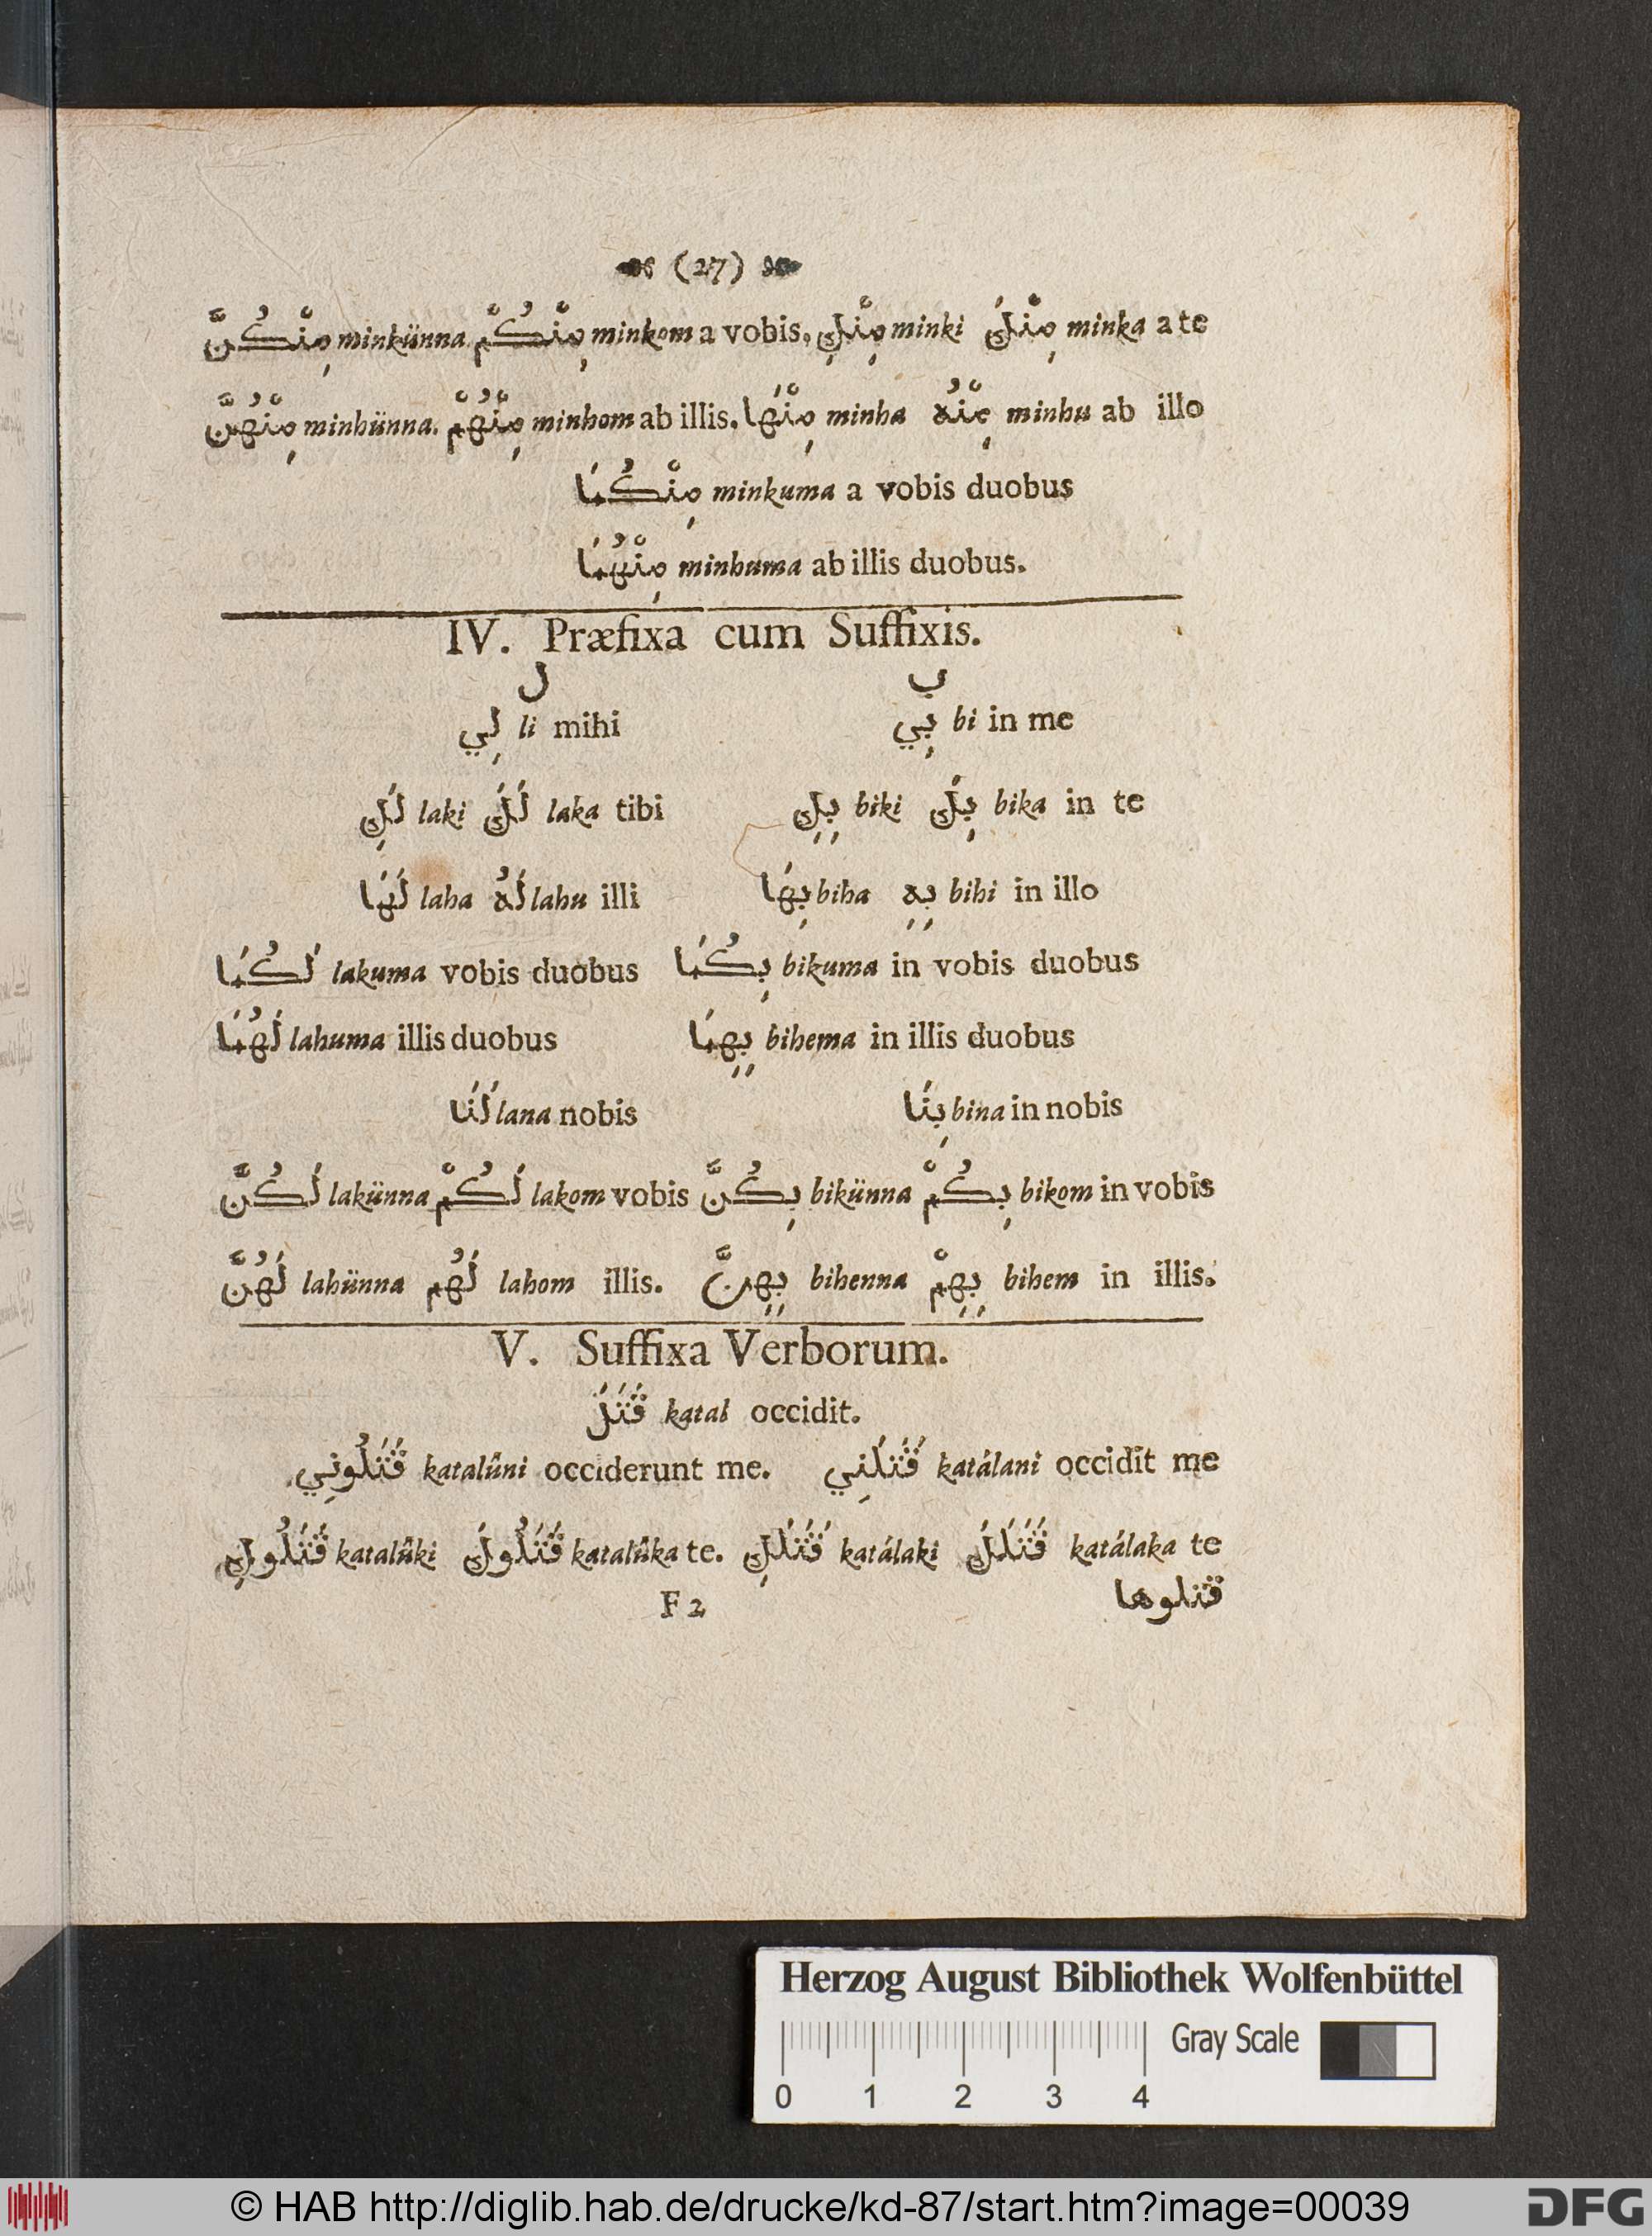 (27)
مِنْكُنَّ minkünna مِنْكُمْ minkom a vobis, مِنْكِ minki مِنْكَ minka a te
مِنْهُنَّ minhünna. مِنْهُمْ minhom ab illis. مِنْهَا minha مِنْهُ minhu ab illo
مِنْكُمَا minkuma a vobis duobus
مِنْهُمَا minhuma ab illis duobus.
IV. Præfixa cum Suffixis.
ل ب
لِي li mihi بِي bi in me
لَكِ laki لَكَ laka tibi بِكِ biki بِكَ bika in te
لَهَا laha لَهُ lahu illi بِهَا biha بِهِ bihi in illo
لَكُمَا lakuma vobis duobus بِكُمَا bikuma in vobis duobus
لَهُمَا lahuma illis duobus بِهِمَا bihema in illis duobus
لَنَا lana nobis بِنَا bina in nobis
لَكُنَّ lakünna لَكُمْ lakom vobis بِكُنَّ bikünna بِكُمْ bikom in vobis
لَهُنَّ lahünna لَهُم lahom illis. بِهِنَّ bihenna بِهِمْ bihem in illis.
V. Suffixa Verborum.
قَتَلَ katal occidit.
قَتَلُونِي katalûni occiderunt me. قَتَلَنِي katálani occidit me
قَتَلُوكِ katalûki قَتَلُوكَ katalûka te. قَتَلَكِ katálaki قَتَلَكَ katálaka te
F 2 قتلوها
Herzog August Bibliothek Wolfenbüttel
Gray Scale
0 1 2 3 4
© HAB http://diglib.hab.de/drucke/kd-87/start.htm?image=00039 DFG